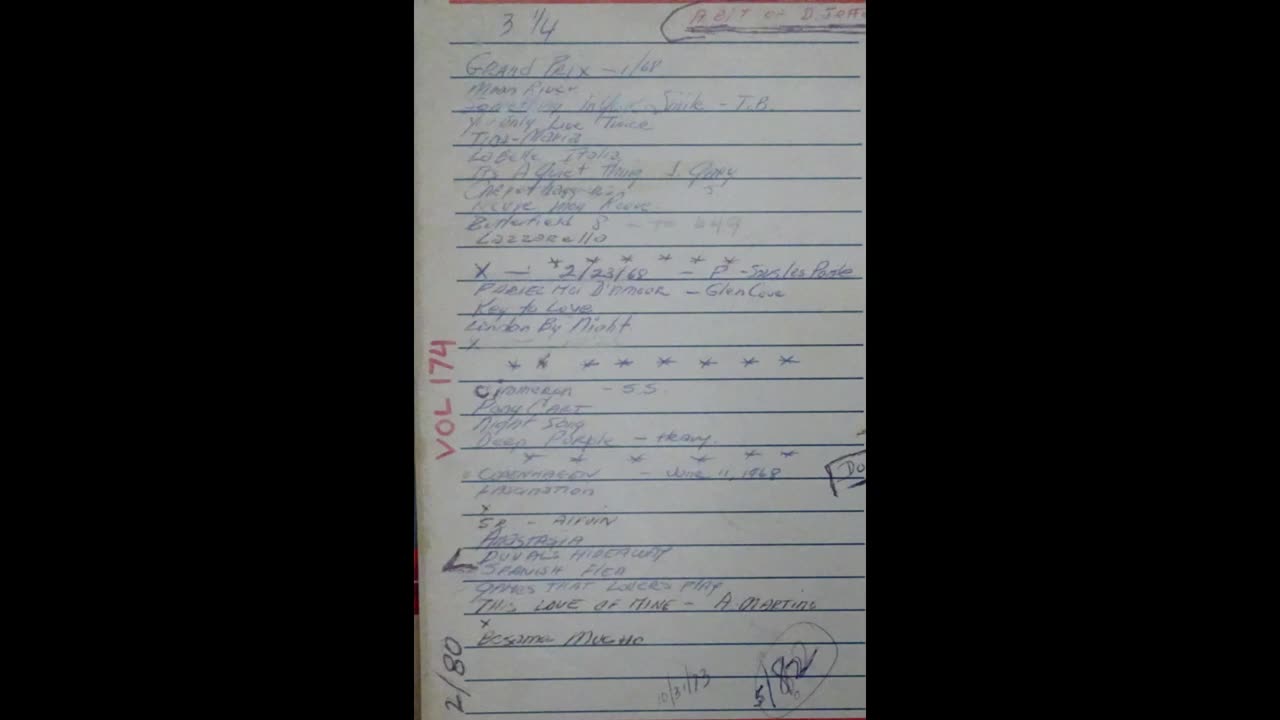 3 1/4
A BIT OF D.
GRAND PRIX - 1/68
Moon River
In Your Smile - T.B.
You Only Live Twice
Tina-Maria
La Belle Italia
It's A Quiet Thing
Butterfield 8
Lazzarella
* * * * * *
X — 2/23/68 - P -
PARLEZ MOI D'AMOUR - Glen Cove
Key to Love
London By Night
X
* * * * * * *
Cimmeron - S.S.
Pony CART
Night Song
Deep Purple - Heavy
* * * * * *
COPENHAGEN - June 11, 1968
FASCINATION
x
ANASTASIA
DUVAL'S HIDEAWAY
SPANISH FLEA
GAMES THAT LOVERS PLAY
THIS LOVE OF MINE - A. MARTINO
x
Besame MUCHO
10/31/73
5/82
VOL 174
2/80